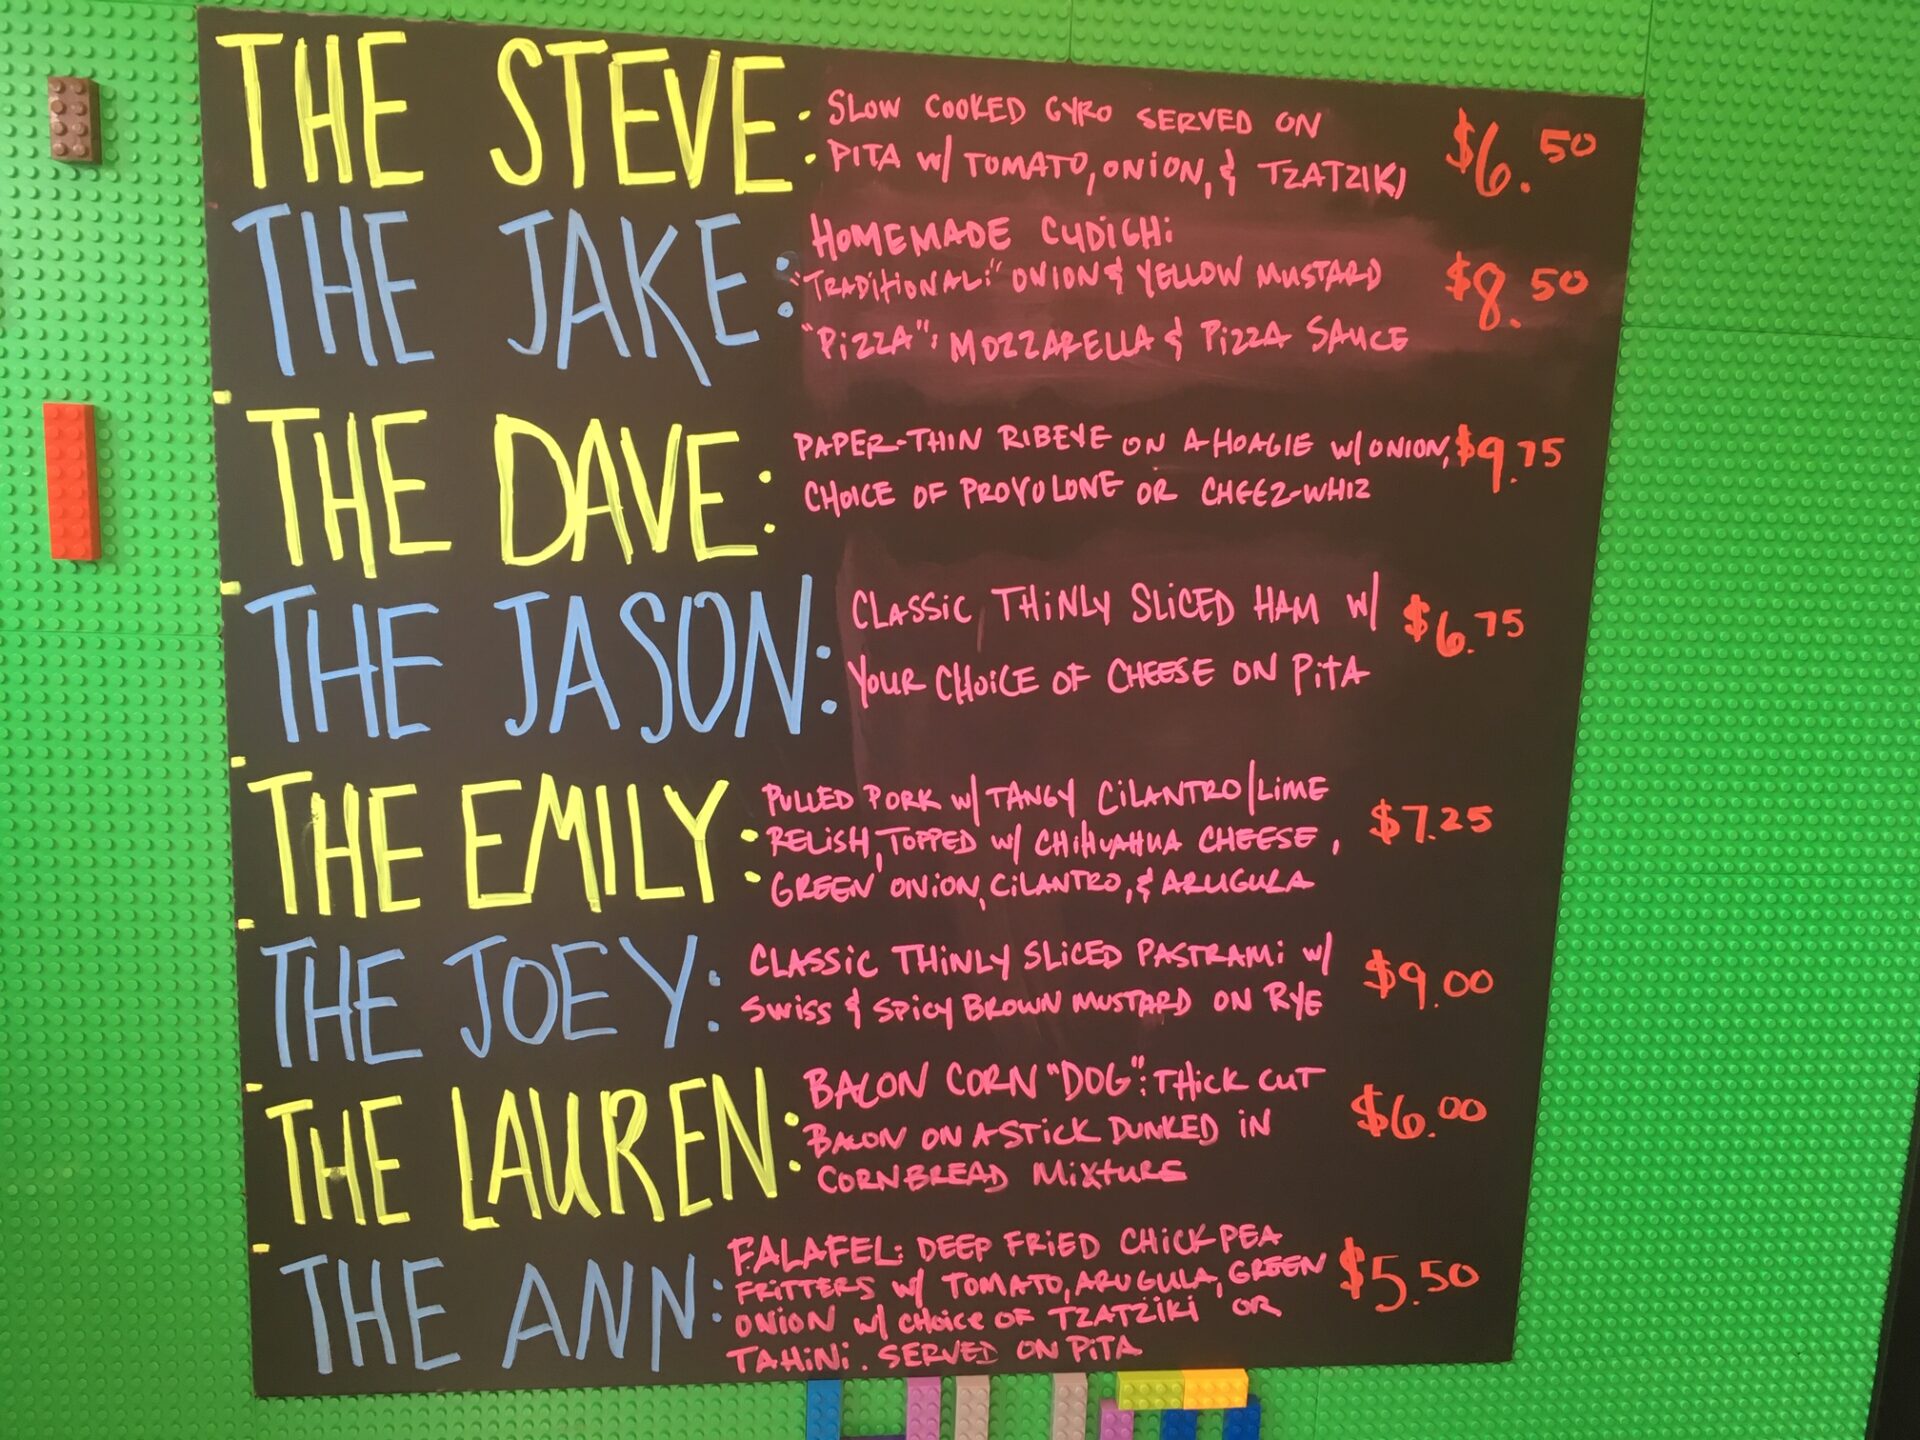 THE STEVE: SLOW COOKED GYRO SERVED ON
PITA W/ TOMATO, ONION, & TZATZIKI
$6.50
THE JAKE: HOMEMADE CUDIGHI:
"TRADITIONAL:" ONION & YELLOW MUSTARD
"PIZZA": MOZZARELLA & PIZZA SAUCE
$8.50
THE DAVE: PAPER-THIN RIBEYE ON A HOAGIE W/ ONION,
CHOICE OF PROVOLONE OR CHEEZ-WHIZ
$9.75
THE JASON: CLASSIC THINLY SLICED HAM W/
YOUR CHOICE OF CHEESE ON PITA
$6.75
THE EMILY: PULLED PORK W/ TANGY CILANTRO/LIME
RELISH, TOPPED W/ CHIHUAHUA CHEESE,
GREEN ONION, CILANTRO, & ARUGULA
$7.25
THE JOEY: CLASSIC THINLY SLICED PASTRAMI W/
SWISS & SPICY BROWN MUSTARD ON RYE
$9.00
THE LAUREN: BACON CORN "DOG": THICK CUT
BACON ON A STICK DUNKED IN
CORNBREAD MIXTURE
$6.00
THE ANN: FALAFEL: DEEP FRIED CHICKPEA
FRITTERS W/ TOMATO, ARUGULA, GREEN
ONION W/ CHOICE OF TZATZIKI OR
TAHINI. SERVED ON PITA
$5.50